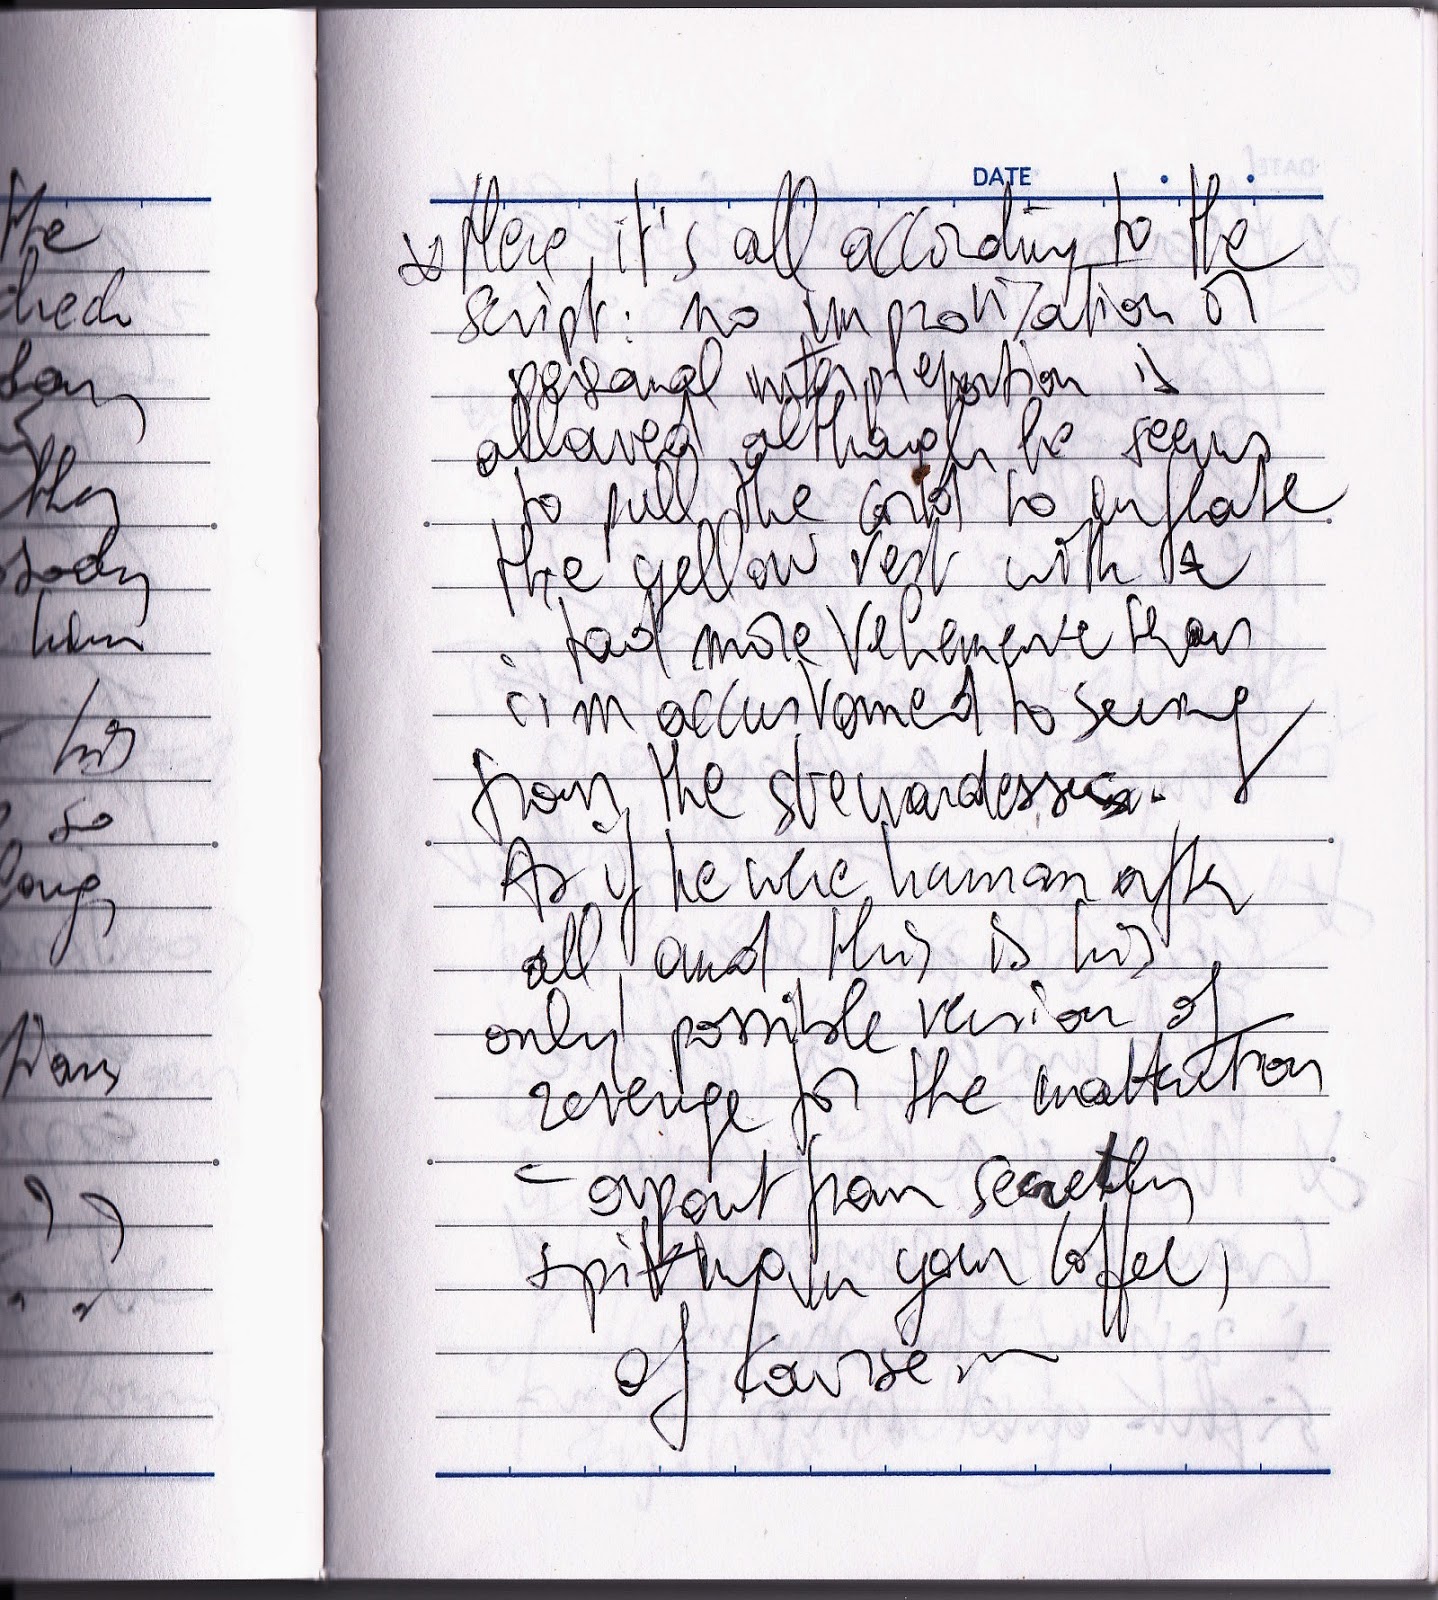 the
ched
they
body
him
his
so
long,
DATE
Here, it's all according to the
script: no improvization or
personal interpretation is
allowed although he seems
to pull the cord to inflate
the yellow vest with a
tad more vehemence than
i'm accustomed to seeing
from the stewardesses.
As if he whe human after
all and this is his
only possible version of
revenge for the
- apart from secretly
spitting in your coffee,
of course —